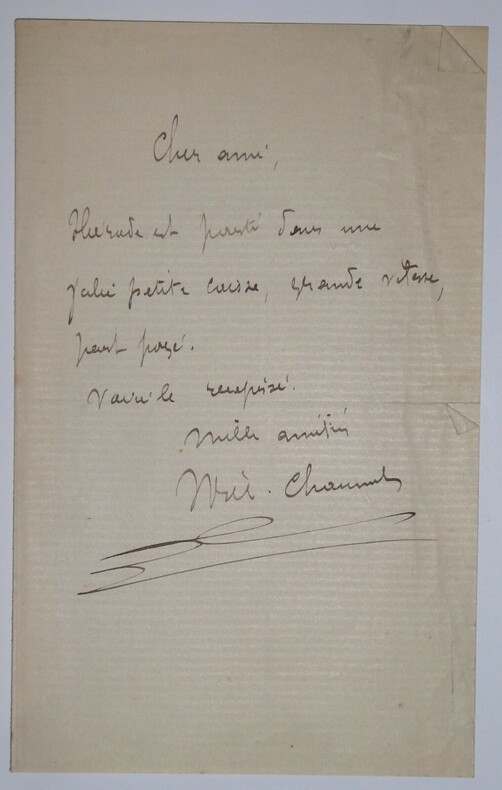 Cher ami,
est parti dans une
jolie petite caisse, grande vitesse,
port payé.
Voici le récépissé.
Mille amitiés